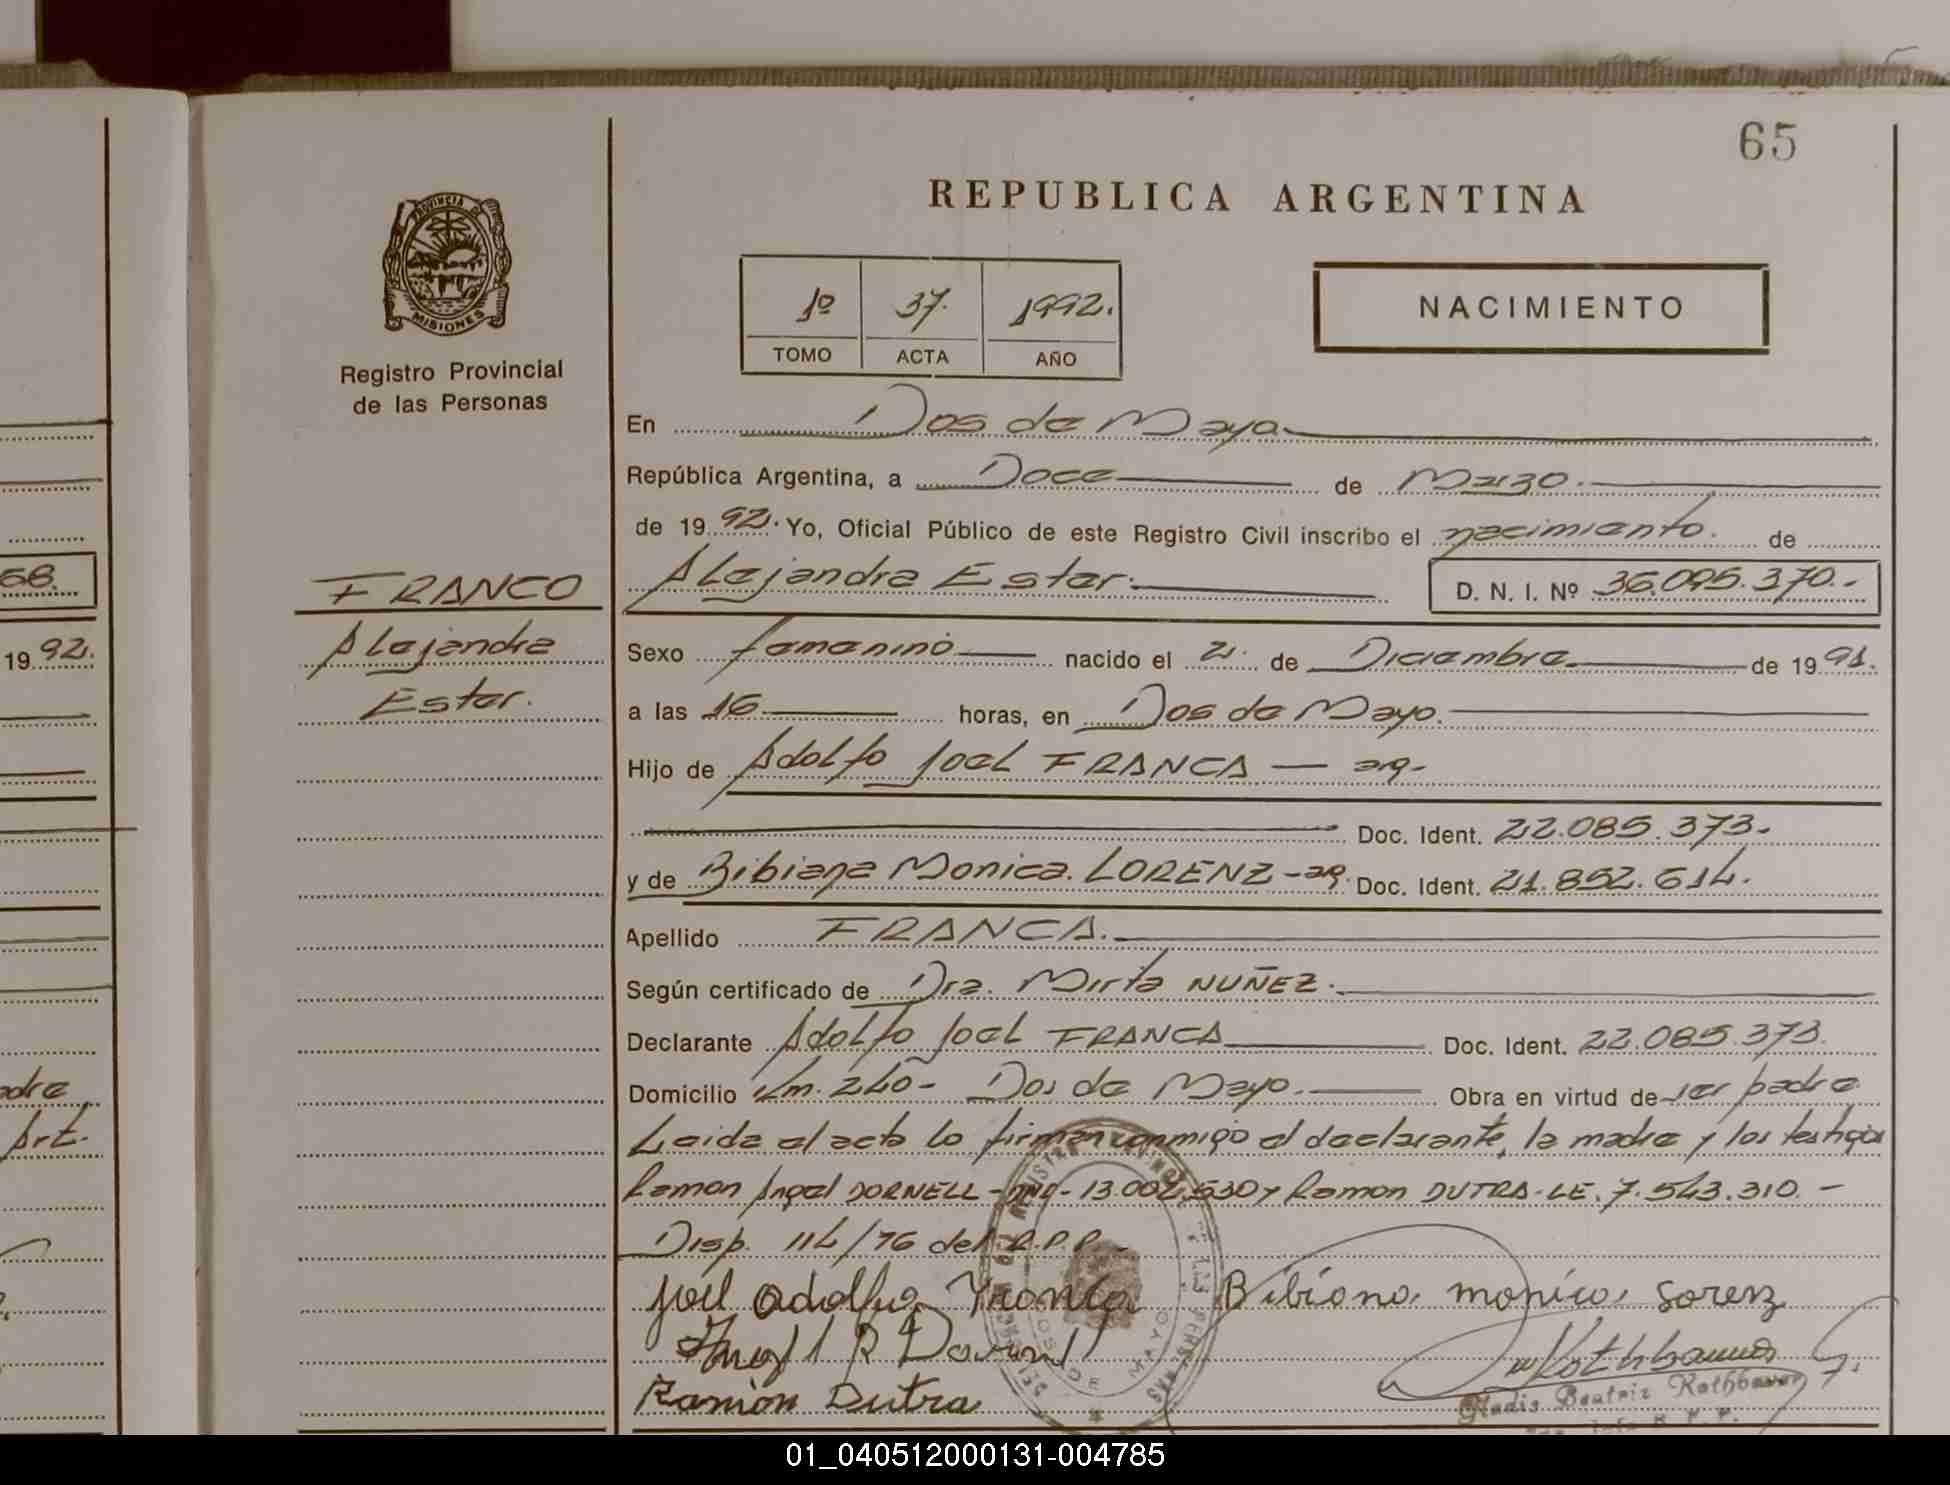 65
REPUBLICA ARGENTINA
PROVINCIA DE
MISIONES
Registro Provincial
de las Personas
1º 37. 1992.
TOMO ACTA AÑO
NACIMIENTO
En Dos de Mayo
República Argentina, a Doce de Marzo.
de 1992. Yo, Oficial Público de este Registro Civil inscribo el nacimiento. de
68.
FRANCO
Alejandra Ester. D. N. I. Nº 36.095.370.-
1992.
Alejandra
Ester.
Sexo femenino nacido el 2. de Diciembre de 1991.
a las 16 horas, en Dos de Mayo.
Hijo de Adolfo Joel FRANCA — arg-
Doc. Ident. 22.085.373.
y de Bibiana Monica LORENZ - arg. Doc. Ident. 21.852.614.
Apellido FRANCA.
Según certificado de Dra. Mirta NUÑEZ.
Declarante Adolfo Joel FRANCA Doc. Ident. 22.085.373.
Domicilio Km. 240 - Dos de Mayo. Obra en virtud de ser padre
Art.
Leida el acta lo firman conmigo el declarante, la madre y los testigos
Ramon Angel DORNELL - DNI - 13.002.530 y Ramon DUTRA - LE. 7.543.310. -
Disp. 114/76 del R.P.P. -
Joel Adolfo Franca Bibiana monica Lorenz
Angel R Dornell
Ramón Dutra
Gladis Beatriz Rothbauer
DOS DE MAYO
01_040512000131-004785